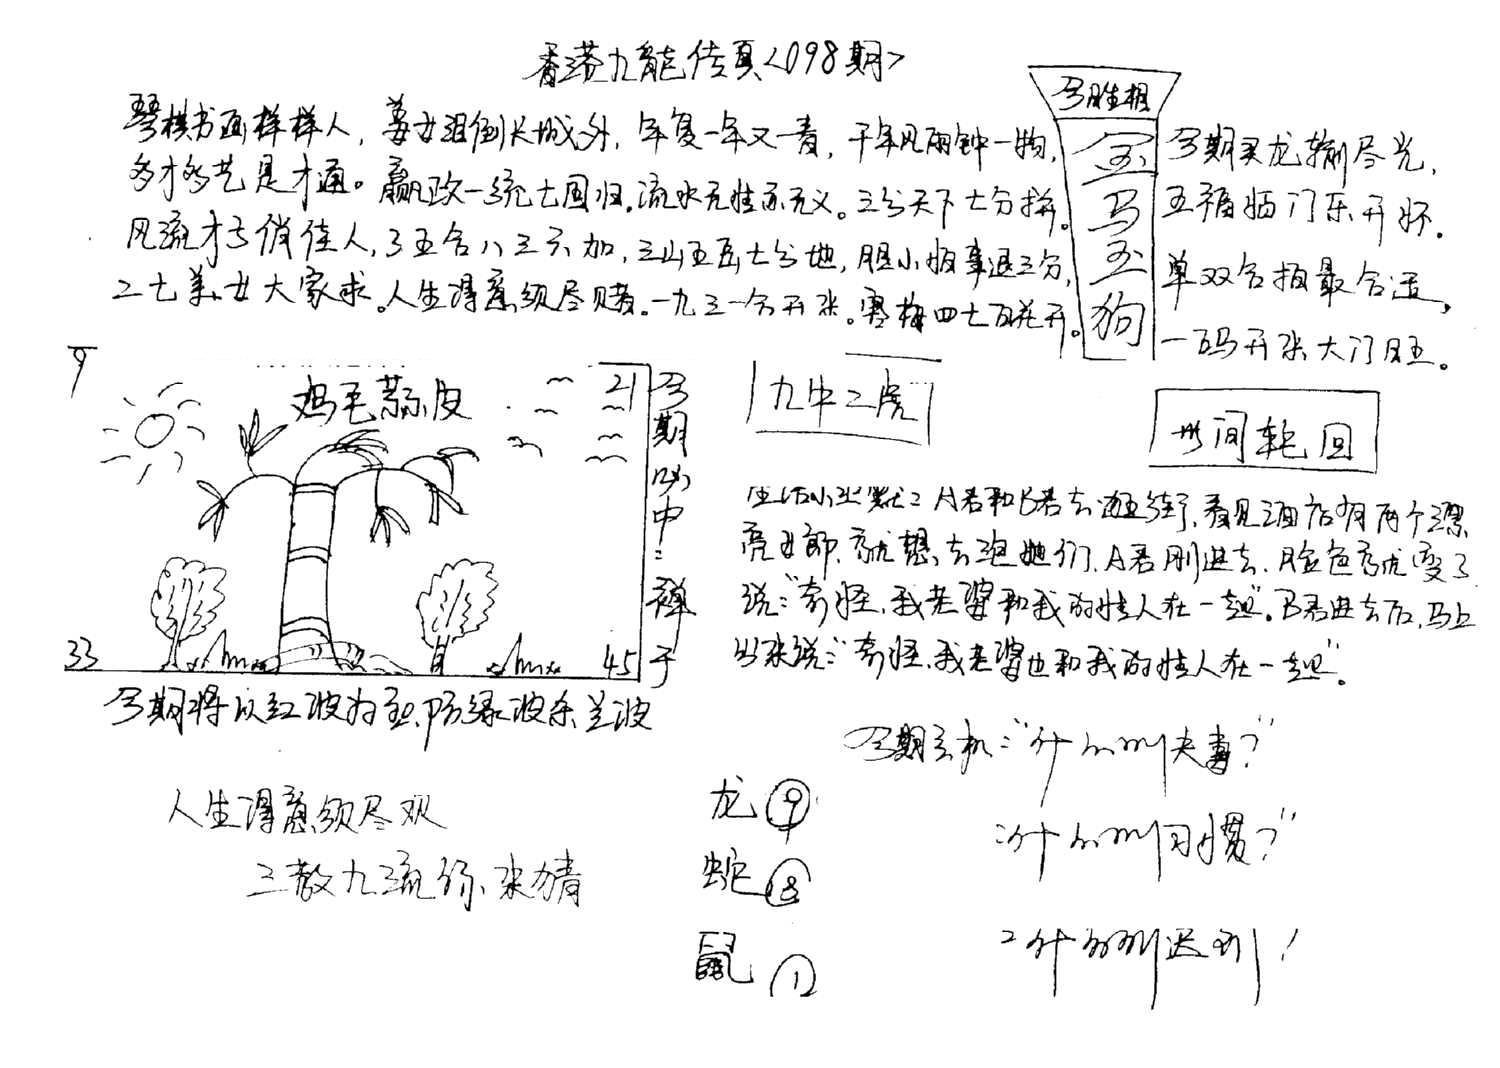 香港九龙传真<098期>
琴棋书画样样人，姜女泪倒长城外，年复一年又一春，千年风雨钟一物，
多才多艺是才通。嬴政一统七国归。流水无性亦无义。三分天下七分拼。
风流才子俏佳人，了五合八三六加，三山五岳七分地，胆小怕事退三分，
二七美女大家求。人生得意须尽赌。一九三一合开来。寒梅四七百花开。
今期生相
金
马
玉
狗
今期买龙输尽光，
五福临门乐开怀。
单双合拍最合适，
一码开来大门旺。
9
21
33
45
鸡毛蒜皮
今期必中：禅子
今期将以红波为主，防绿波杀兰波
九中二虎
世间轮回
生活小幽默：A君和B君去逛街，看见酒店有两个漂
亮女郎，就想去泡她们，A君刚进去，脸色就变了
说：“奇怪，我老婆和我的情人在一起”。B君进去后，马上
出来说：“奇怪，我老婆也和我的情人在一起”。
人生得意须尽欢
三教九流你来猜
龙 9
蛇 8
鼠 1
今期玄机：“什么叫夫妻？”
“什么叫习惯？”
什么叫迟到！